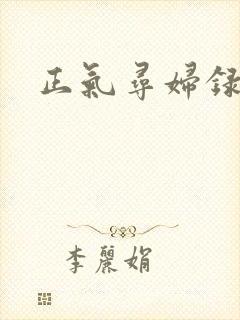 正氣尋婦録
李麗娟